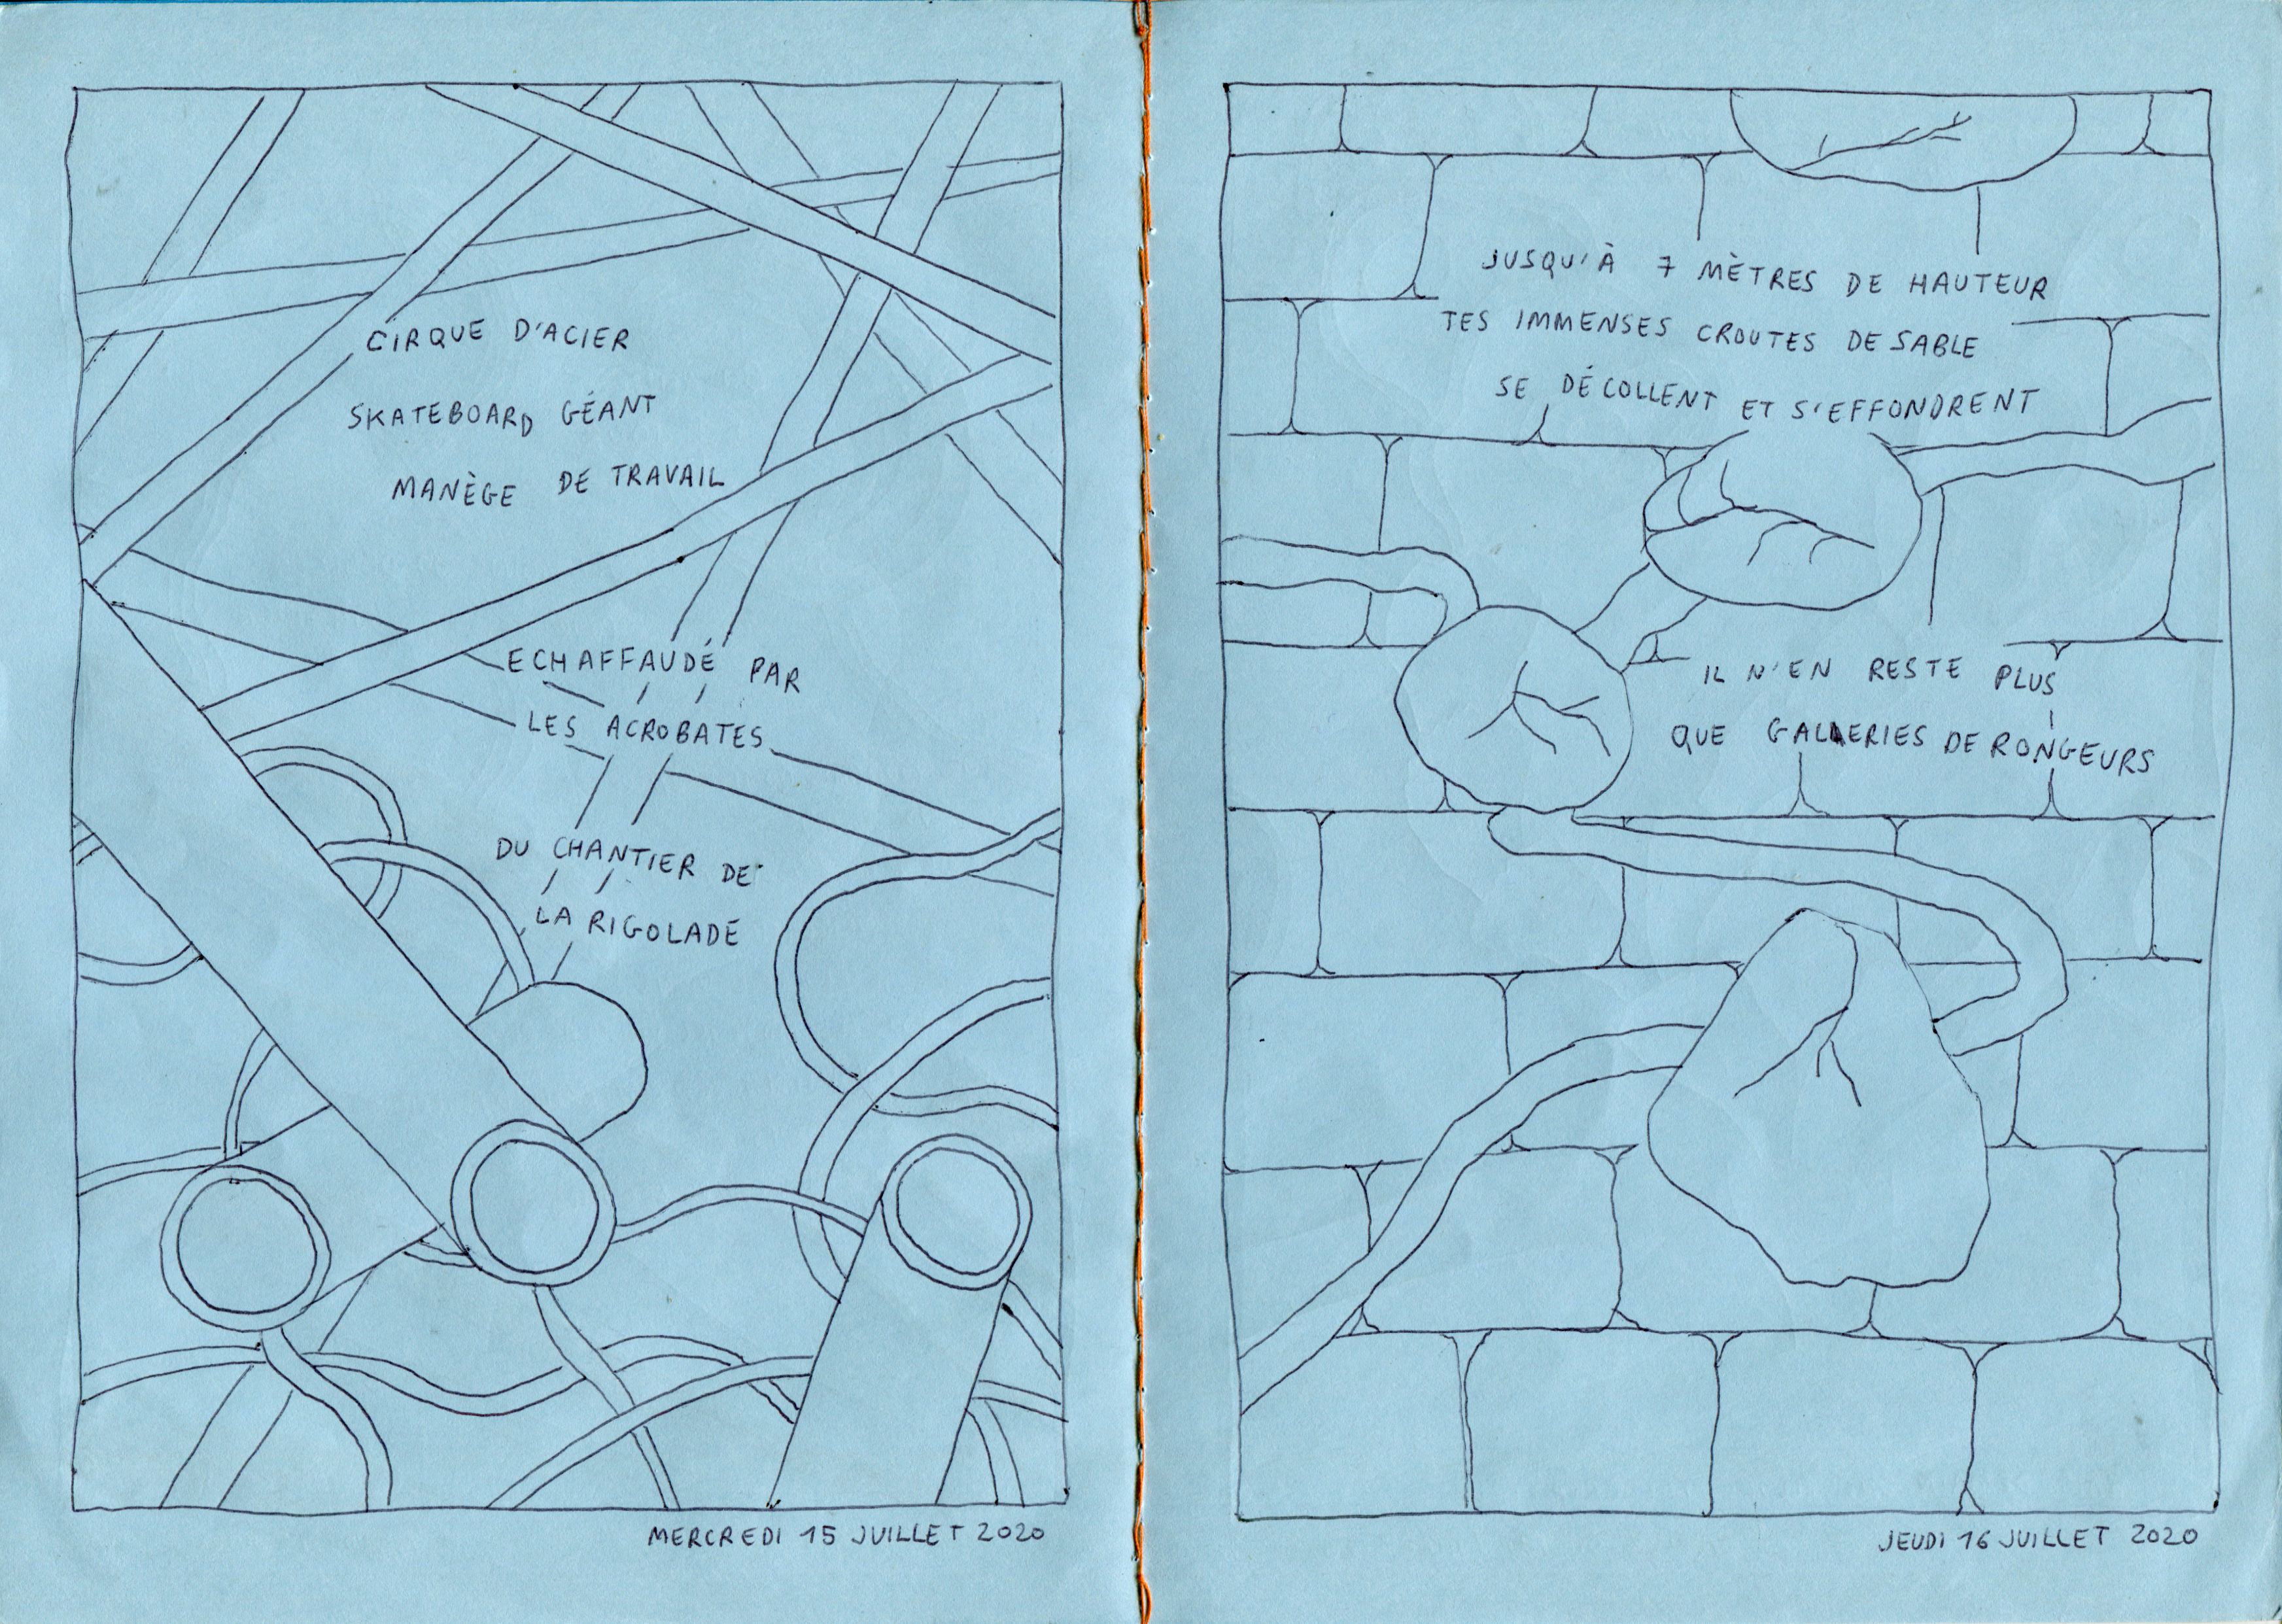 CIRQUE D'ACIER
SKATEBOARD GÉANT
MANÈGE DE TRAVAIL
ECHAFFAUDÉ PAR
LES ACROBATES
DU CHANTIER DE
LA RIGOLADE
MERCREDI 15 JUILLET 2020
JUSQU'À 7 MÈTRES DE HAUTEUR
TES IMMENSES CROUTES DE SABLE
SE DÉCOLLENT ET S'EFFONDRENT
IL N'EN RESTE PLUS
QUE GALLERIES DE RONGEURS
JEUDI 16 JUILLET 2020